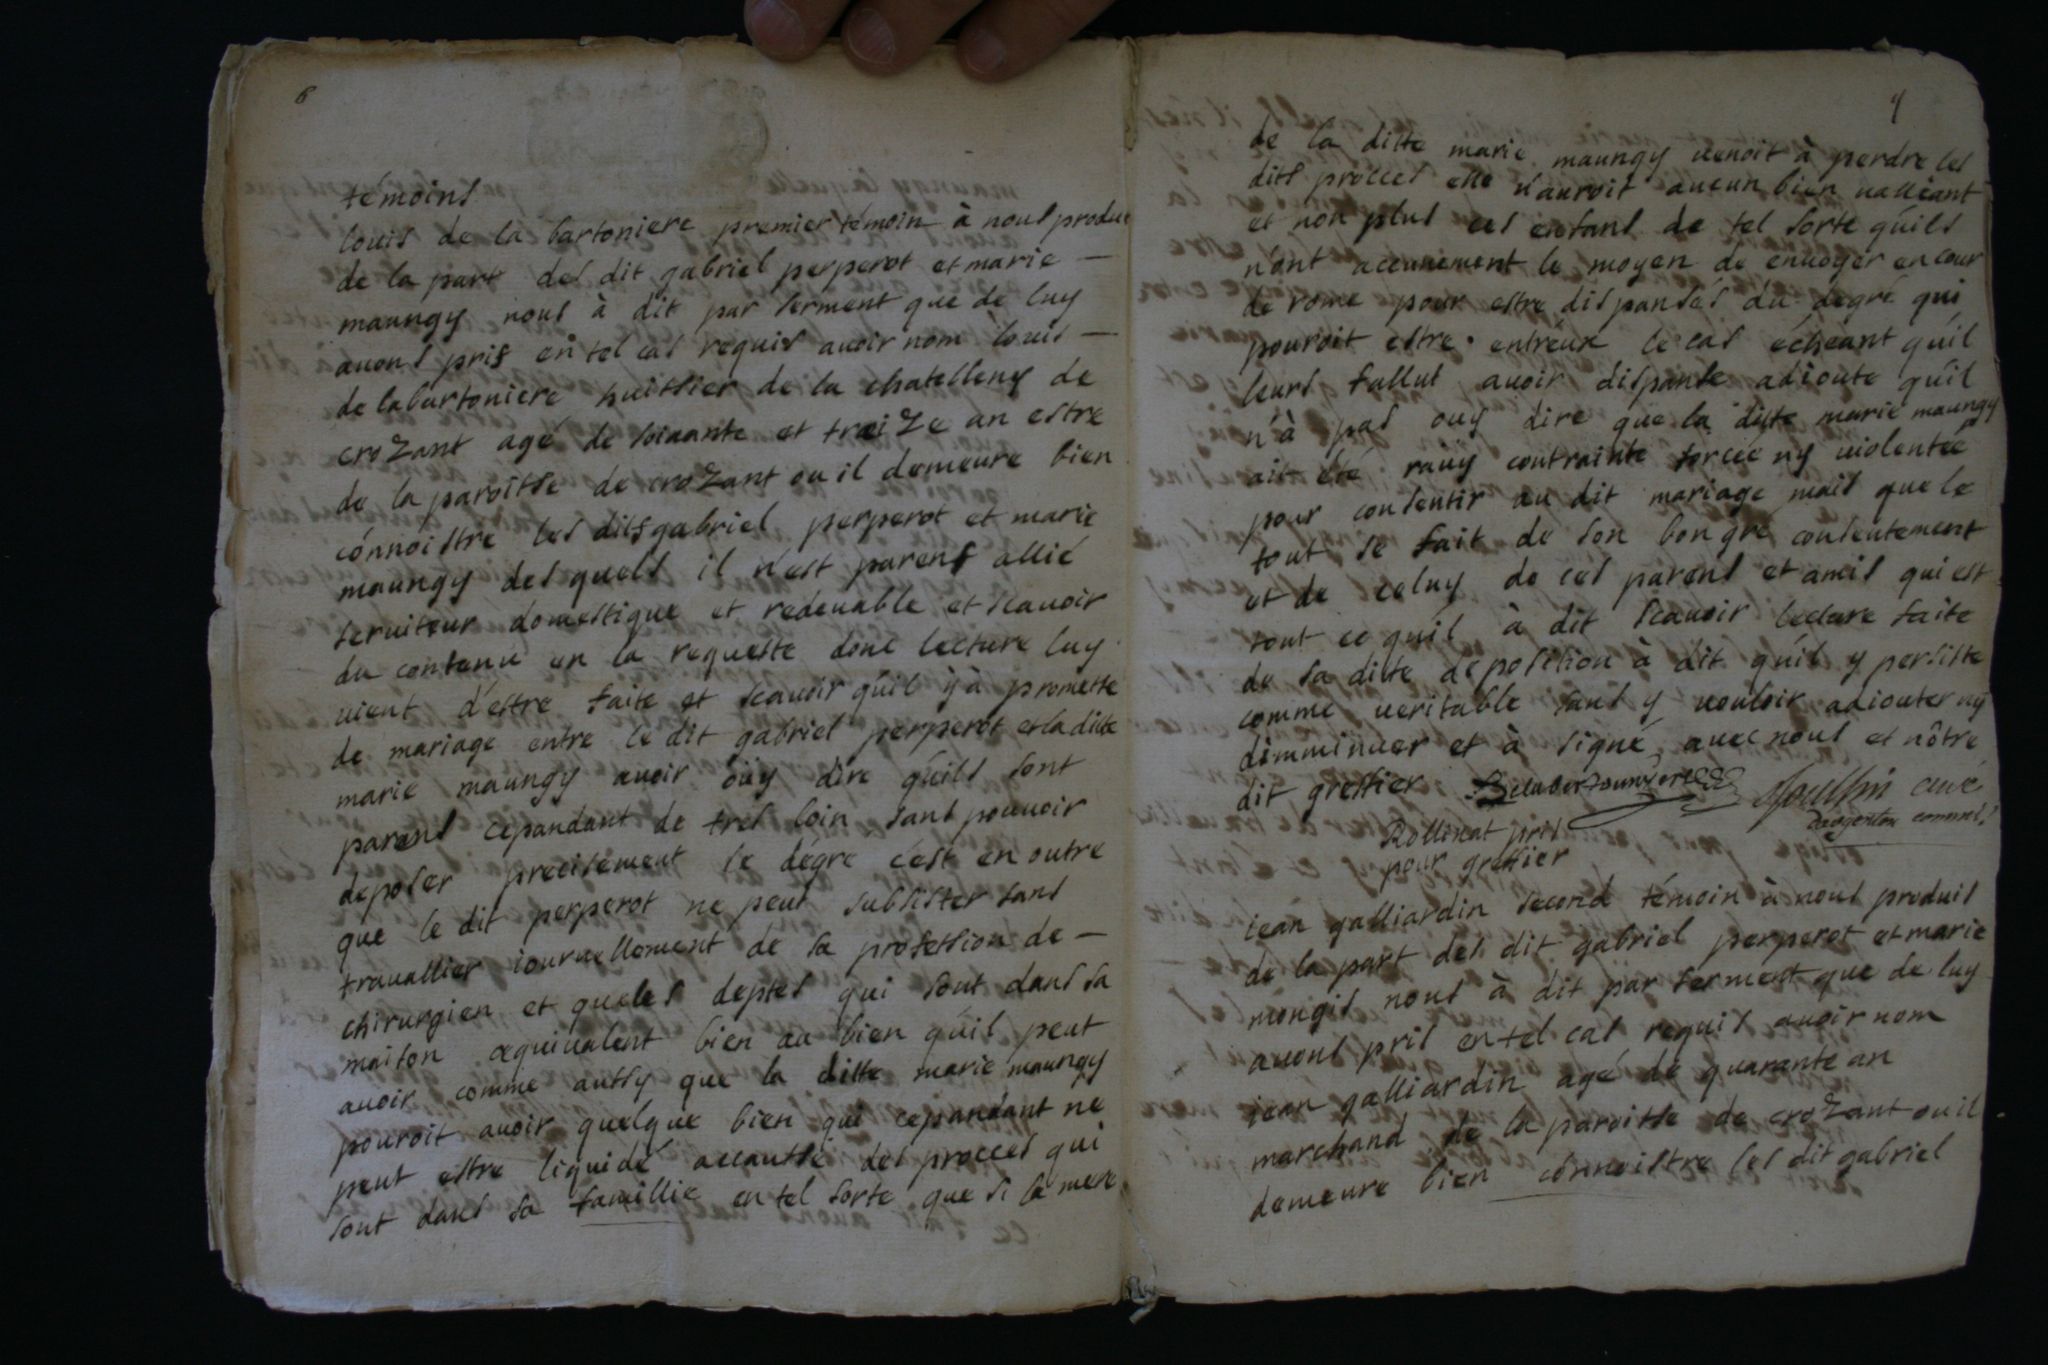 6
témoins
louis de la bartoniere premier témoin à nous produit
de la part des dit gabriel perperot et marie —
maungy nous à dit par serment que de luy
avons pris en tel cas requis avoir nom louis —
de labartoniere huissier de la chatelleny de
croZant agé de soixante et traiZe an estre
de la paroisse de croZant ou il demeure bien
connoistre les dits gabriel perperot et marie
maungy des quels il n'est parens allié
serviteur domestique et redevable et scavoir
du contenu en la requeste donc lecture luy
vient d'estre faite et scavoir qu'il y à promesse
de mariage entre le dit gabriel perperot et la ditte
marie maungy avoir öuy dire qu'ils sont
parans cepandant de tres loin sans pouvoir
deposer precisement le dégre c'est en outre
que le dit perperot ne peut subsister sans
travallier iournellement de sa profession de —
chirurgien et queles deptes qui sont dans sa
maison æquivalent bien au bien qu'il peut
avoir comme aussy que la ditte marie maungy
pouroit avoir quelque bien qui cepandant ne
peut estre liquidé accausse des procces qui
sont dans sa famillie en tel sorte que si la mere
7
de la ditte marie maungy venoit à perdre les
dits procces elle n'auroit aucun bien vallieant
et non plus ces enfans de tel sorte qu'ils
n'ont accunement le moyen de envoyer en cour
de rome pour estre dispansés du degré qui
pouroit estre entréux le cas écheant qu'il
leurs fallut avoir dispanse adioute qu'il
n'à pas ouy dire que la ditte marie maungy
ait été ravy contrainte forcée ny violentée
pour consentir au dit mariage mais que le
tout se fait de son bon gré consentement
et de celuy de ces parens et amis qui est
tout ce qu'il à dit scavoir lecture faite
de sa ditte deposition à dit qu'il y persiste
comme veritable sans y vouloir adiouter ny
dimminuer et à signé avec nous et nôtre
dit greffier Delabartouniere Moullin curé
dargenton commis.
Rollinat pris
pour greffier
iean galliardin second témoin à nous produis
de la part des dit gabriel perperot et marie
mongis nous à dit par serment que de luy
avons pris en tel cas requis avoir nom
jean galliardin agé de quarante an
marchand de la paroisse de croZant ou il
demeure bien connoistre les dit gabriel